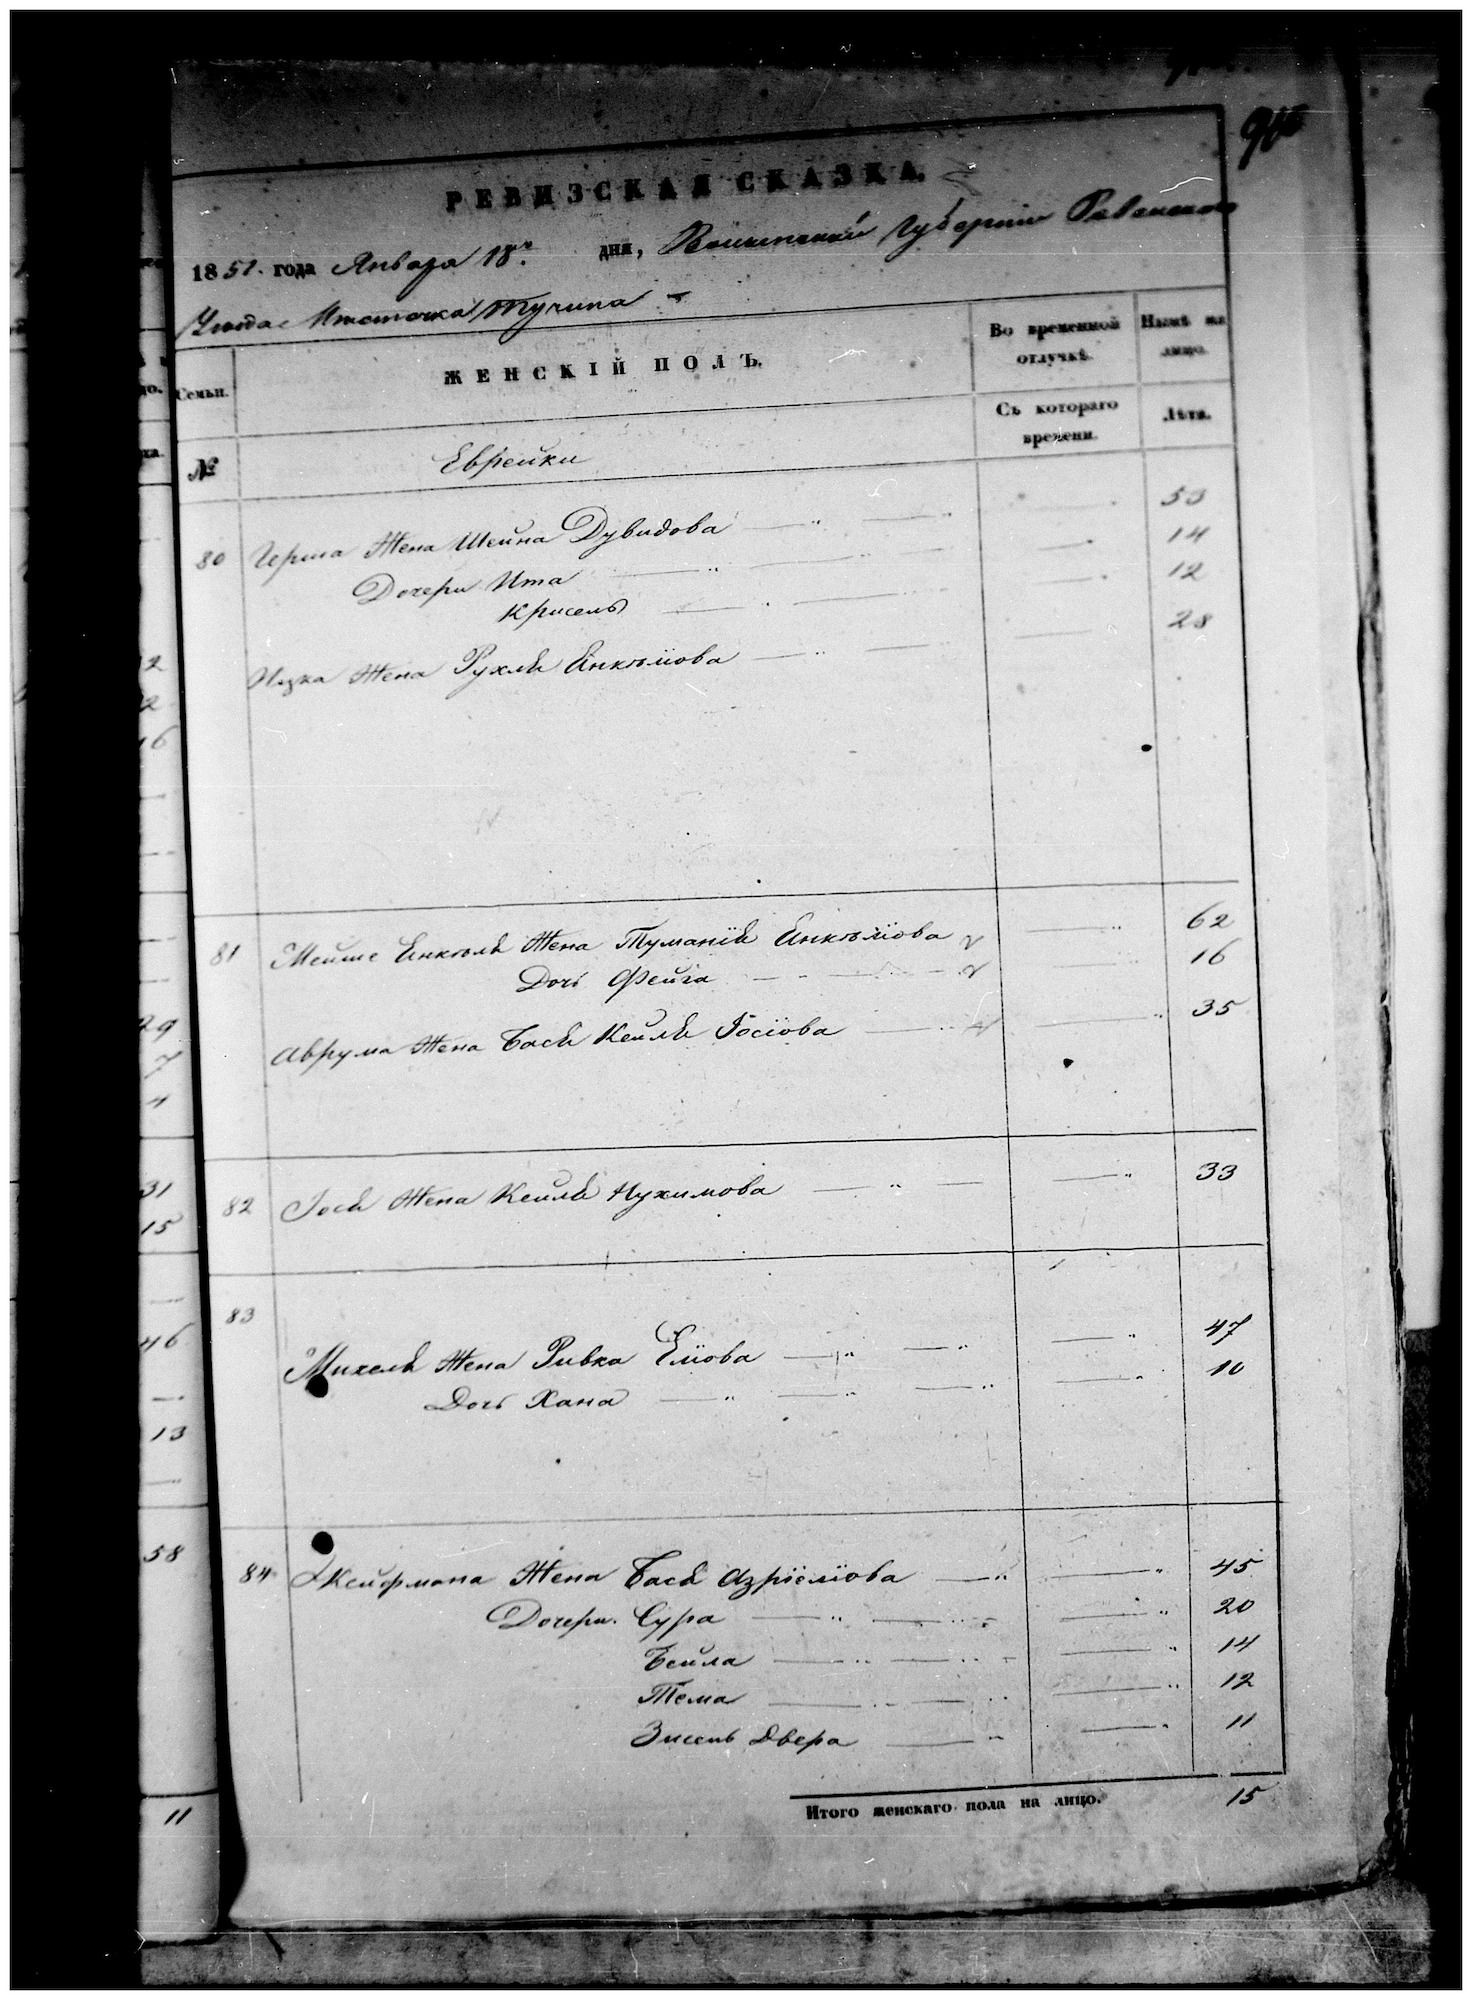 РЕВИЗСКАЯ СКАЗКА.
1851 года Января 18 дня, Волынской Губернии Ровенского
Уезда Местечка Тучина
Семьи. ЖЕНСКІЙ ПОЛЪ. Во временной отлучкѣ. Нынѣ на лицо.
№ Еврейки Съ котораго времени. Лѣта.
80 Герша Жена Шейна Дувидова 53
Дочери Ита 14
Крисель 12
Ицка Жена Рухля Енкелiова 28
81 Мейше Енкеля Жена Туманiя Енкелiова 62
Дочь Фейга 16
Аврума Жена Бася Кейля Iосiова 35
82 Iося Жена Кейля Нухимова 33
83
Михеля Жена Ривка Елiова 47
Дочь Хана 10
84 Жена Бася Азрiелiова 45
Дочери Сура 20
Бейла 14
Тема 12
Двера 11
Итого женскаго пола на лицо. 15
2
2
16
29
7
4
31
15
46
13
58
11